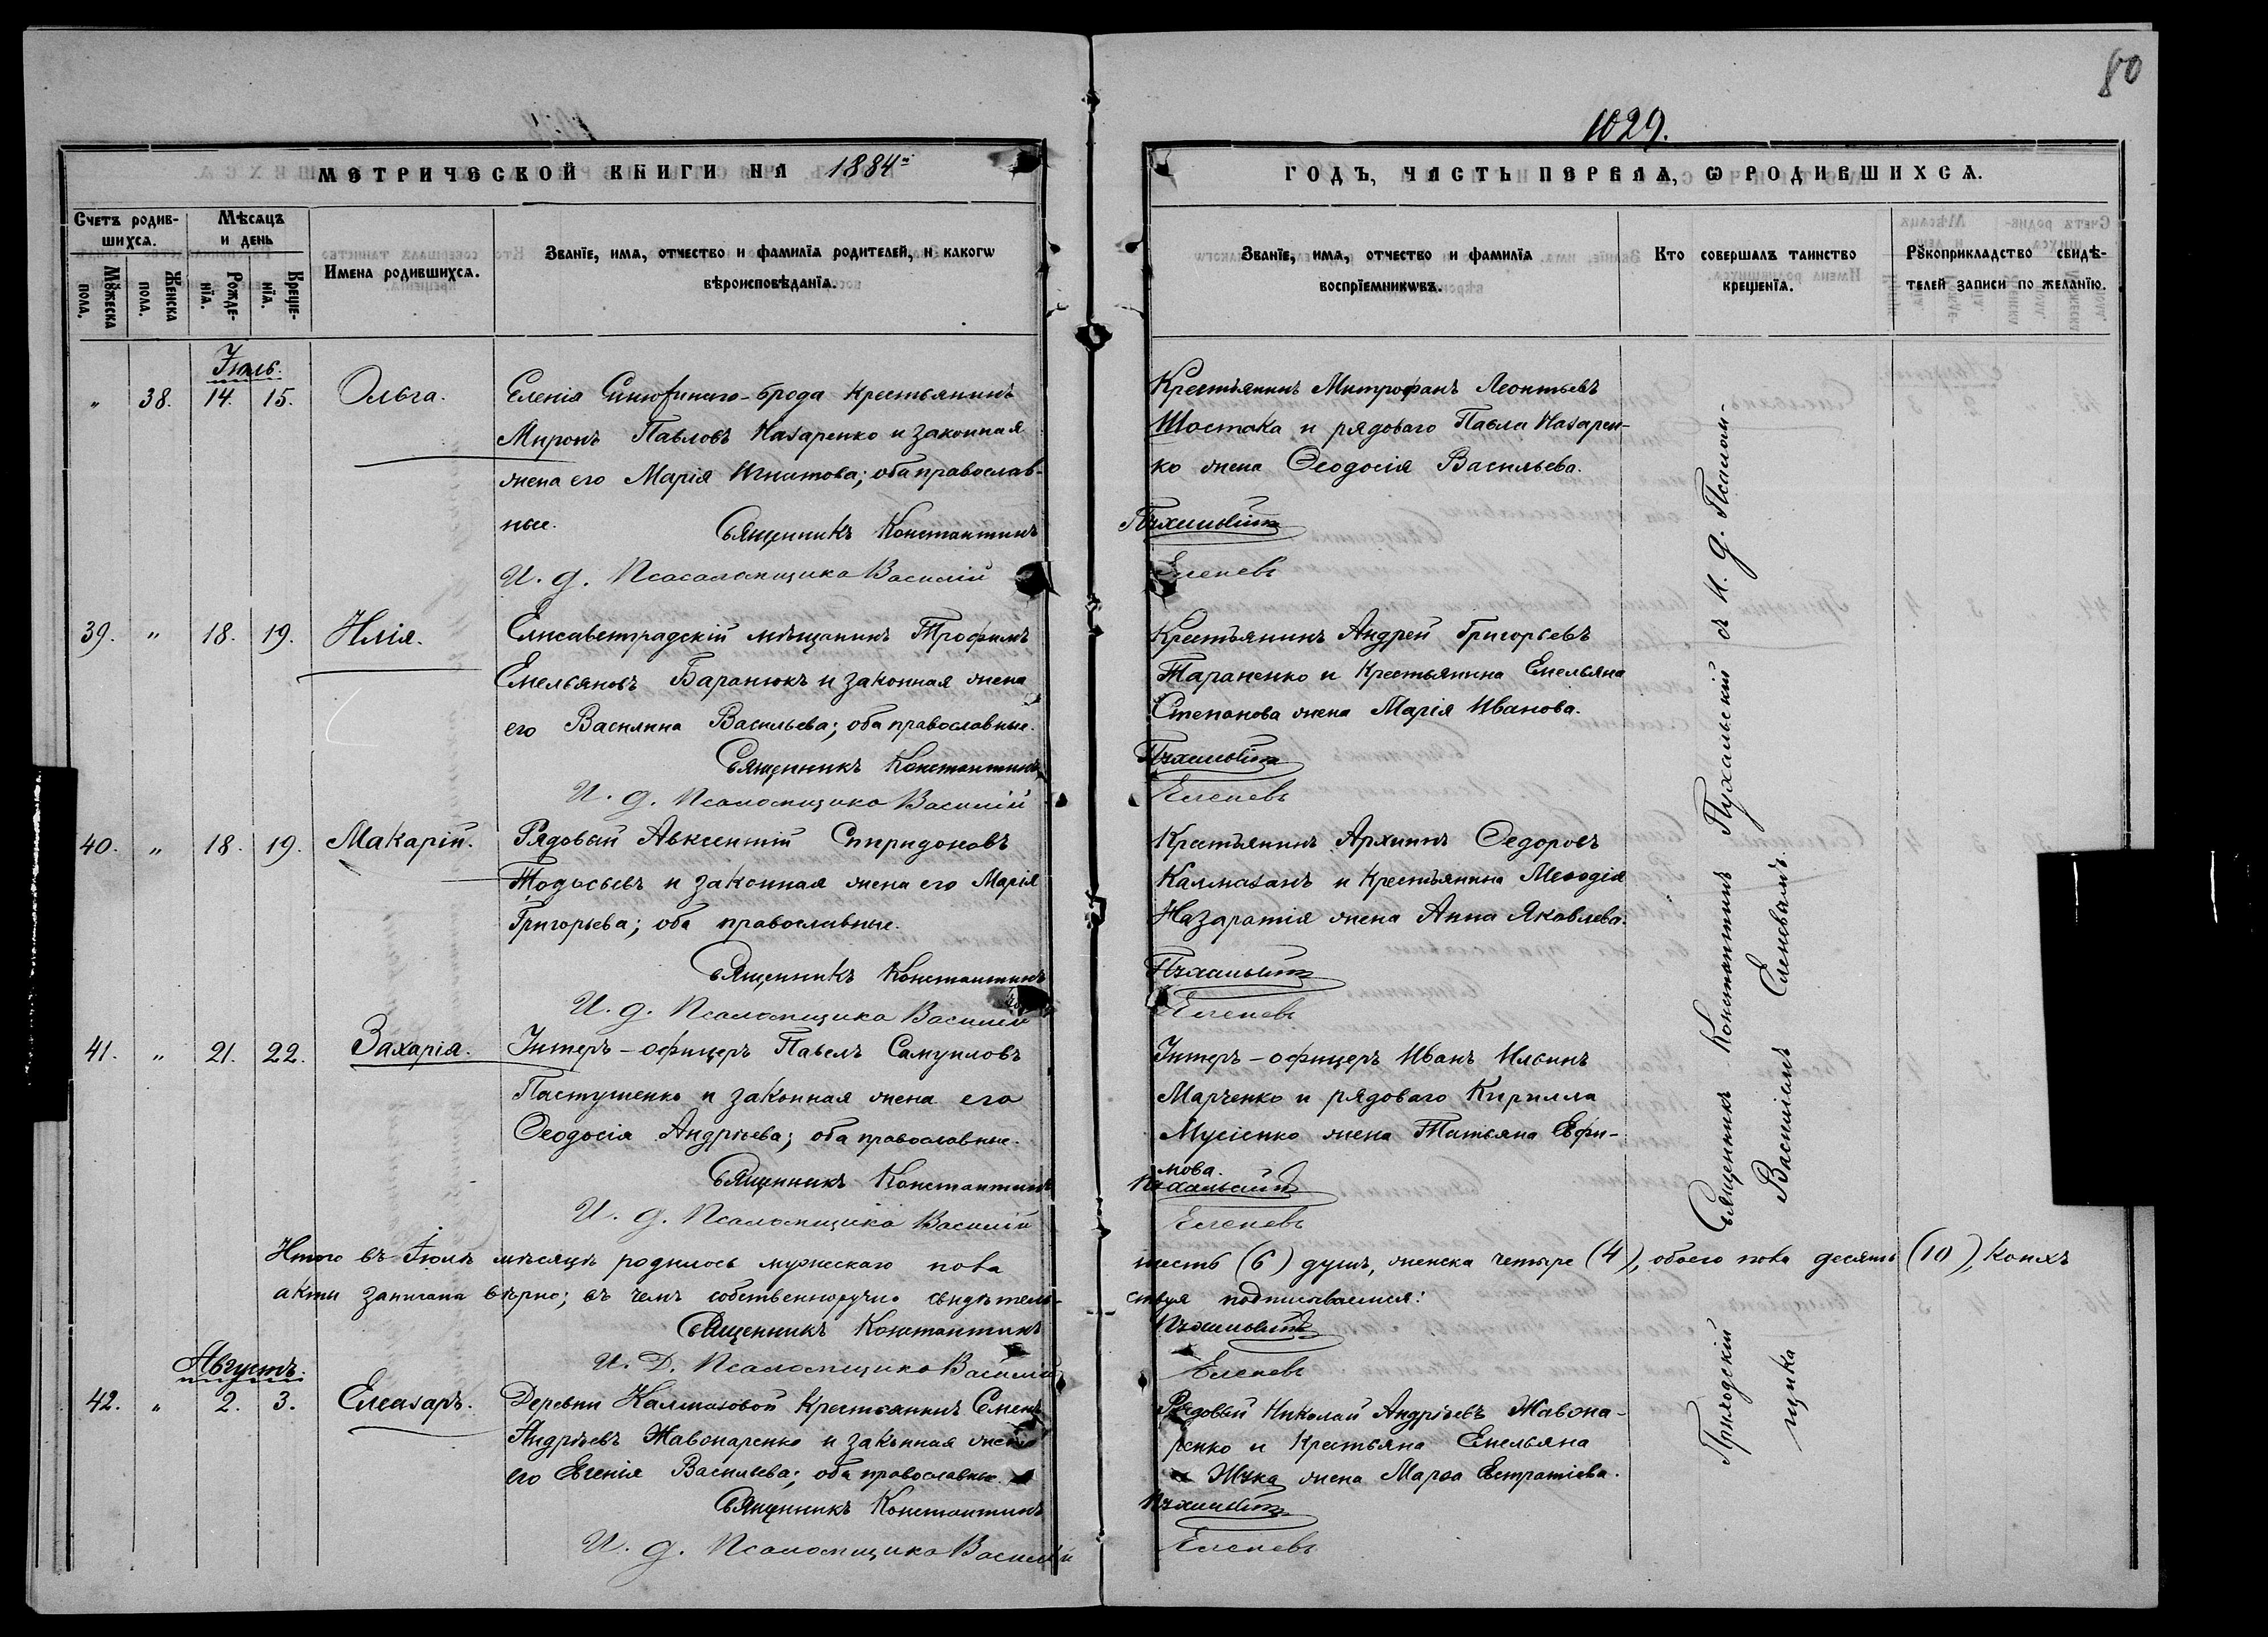 80
1029.
МЕТРИЧЕСКОЙ КНИГИ НА 1884й
ГОДЪ, ЧАСТЬ ПЕРВАЯ, Ѡ РОДИВШИХСѦ.
Счетъ родив-
шихсѧ.
Мѣсѧцъ
и день
Мꙋжеска
пола.
Женска
пола.
Рожде-
нїѧ.
Креще-
нїѧ.
Имена родившихсѧ.
Званїе, имѧ, отчество и фамилїѧ родителей, и какогѡ
вѣроисповѣданїѧ.
Званїе, имѧ, отчество и фамилїѧ
воспрїемникѡвъ.
Кто совершалъ таинство
крещенїѧ.
Рꙋкоприкладство свидѣ-
телей записи по желанїю.
Іюль.
" 38. 14. 15. Ольга.
брода крестьянинъ
Миронъ Павловъ Назаренко и законная
жена его Марія Игнатова; оба православ-
ные.
Священникъ Константинъ
И. д. Псаломщика Василій
Крестьянинъ Митрофанъ Леонтьевъ
Шостака и рядоваго Павла Назарен-
ко жена Ѳеодосія Васильева.
Пухальскій
Еленевъ
39. " 18. 19. Илія.
Елисаветградскій мѣщанинъ Трофимъ
Емельяновъ Баранюкъ и законная жена
его Василина Васильева; оба православные.
Священникъ Константинъ
И. д. Псаломщика Василій
Крестьянинъ Андрей Григорьевъ
Тараненко и крестьянина Емельяна
Степанова жена Марія Иванова.
Пухальскій
Еленевъ
40. " 18. 19. Макарій.
Рядовый Авксентій Спиридоновъ
Тодосьевъ и законная жена его Марія
Григорьева; оба православные.
Священникъ Константинъ
И. д. Псаломщика Василій
Крестьянинъ Архипъ Ѳедоровъ
Калмазанъ и крестьянина Меѳодія
Назаратія жена Анна Яковлева.
Пухальскій
Еленевъ
41. " 21. 22. Захарія.
Унтеръ-офицеръ Павелъ Самуиловъ
Пастушенко и законная жена его
Ѳеодосія Андріева; оба православные.
Священникъ Константинъ
И. д. Псаломщика Василій
Унтеръ-офицеръ Иванъ Ильинъ
Марченко и рядоваго Кирилла
Мусіенко жена Татьяна Ефи-
мова.
Пухальскій
Еленевъ
Итого въ Іюлѣ мѣсяцѣ родилось мужескаго пола шесть (6) душъ, женска четыре (4), обоего пола десять (10), коихъ
акты записана вѣрно; въ чемъ собственноручно свидѣтель-ствуя подписываемся:
Священникъ Константинъ Пухальскій
И. Д. Псаломщика Василій Еленевъ
Августъ.
42. " 2. 3. Елеазаръ.
Деревни Калмазовой крестьянинъ Семенъ
Андріевъ Жавонаренко и законная жена
его Евгенія Васильева; оба православные.
Священникъ Константинъ
И. д. Псаломщика Василій
Рядовый Николай Андріевъ Жавона-
ренко и крестьяна Емельяна
Жука жена Марѳа Евстратіева.
Пухальскій
Еленевъ
Приходскій Священникъ Константинъ Пухальскій съ И. д. Псалом-
щика Василіемъ Еленевымъ.